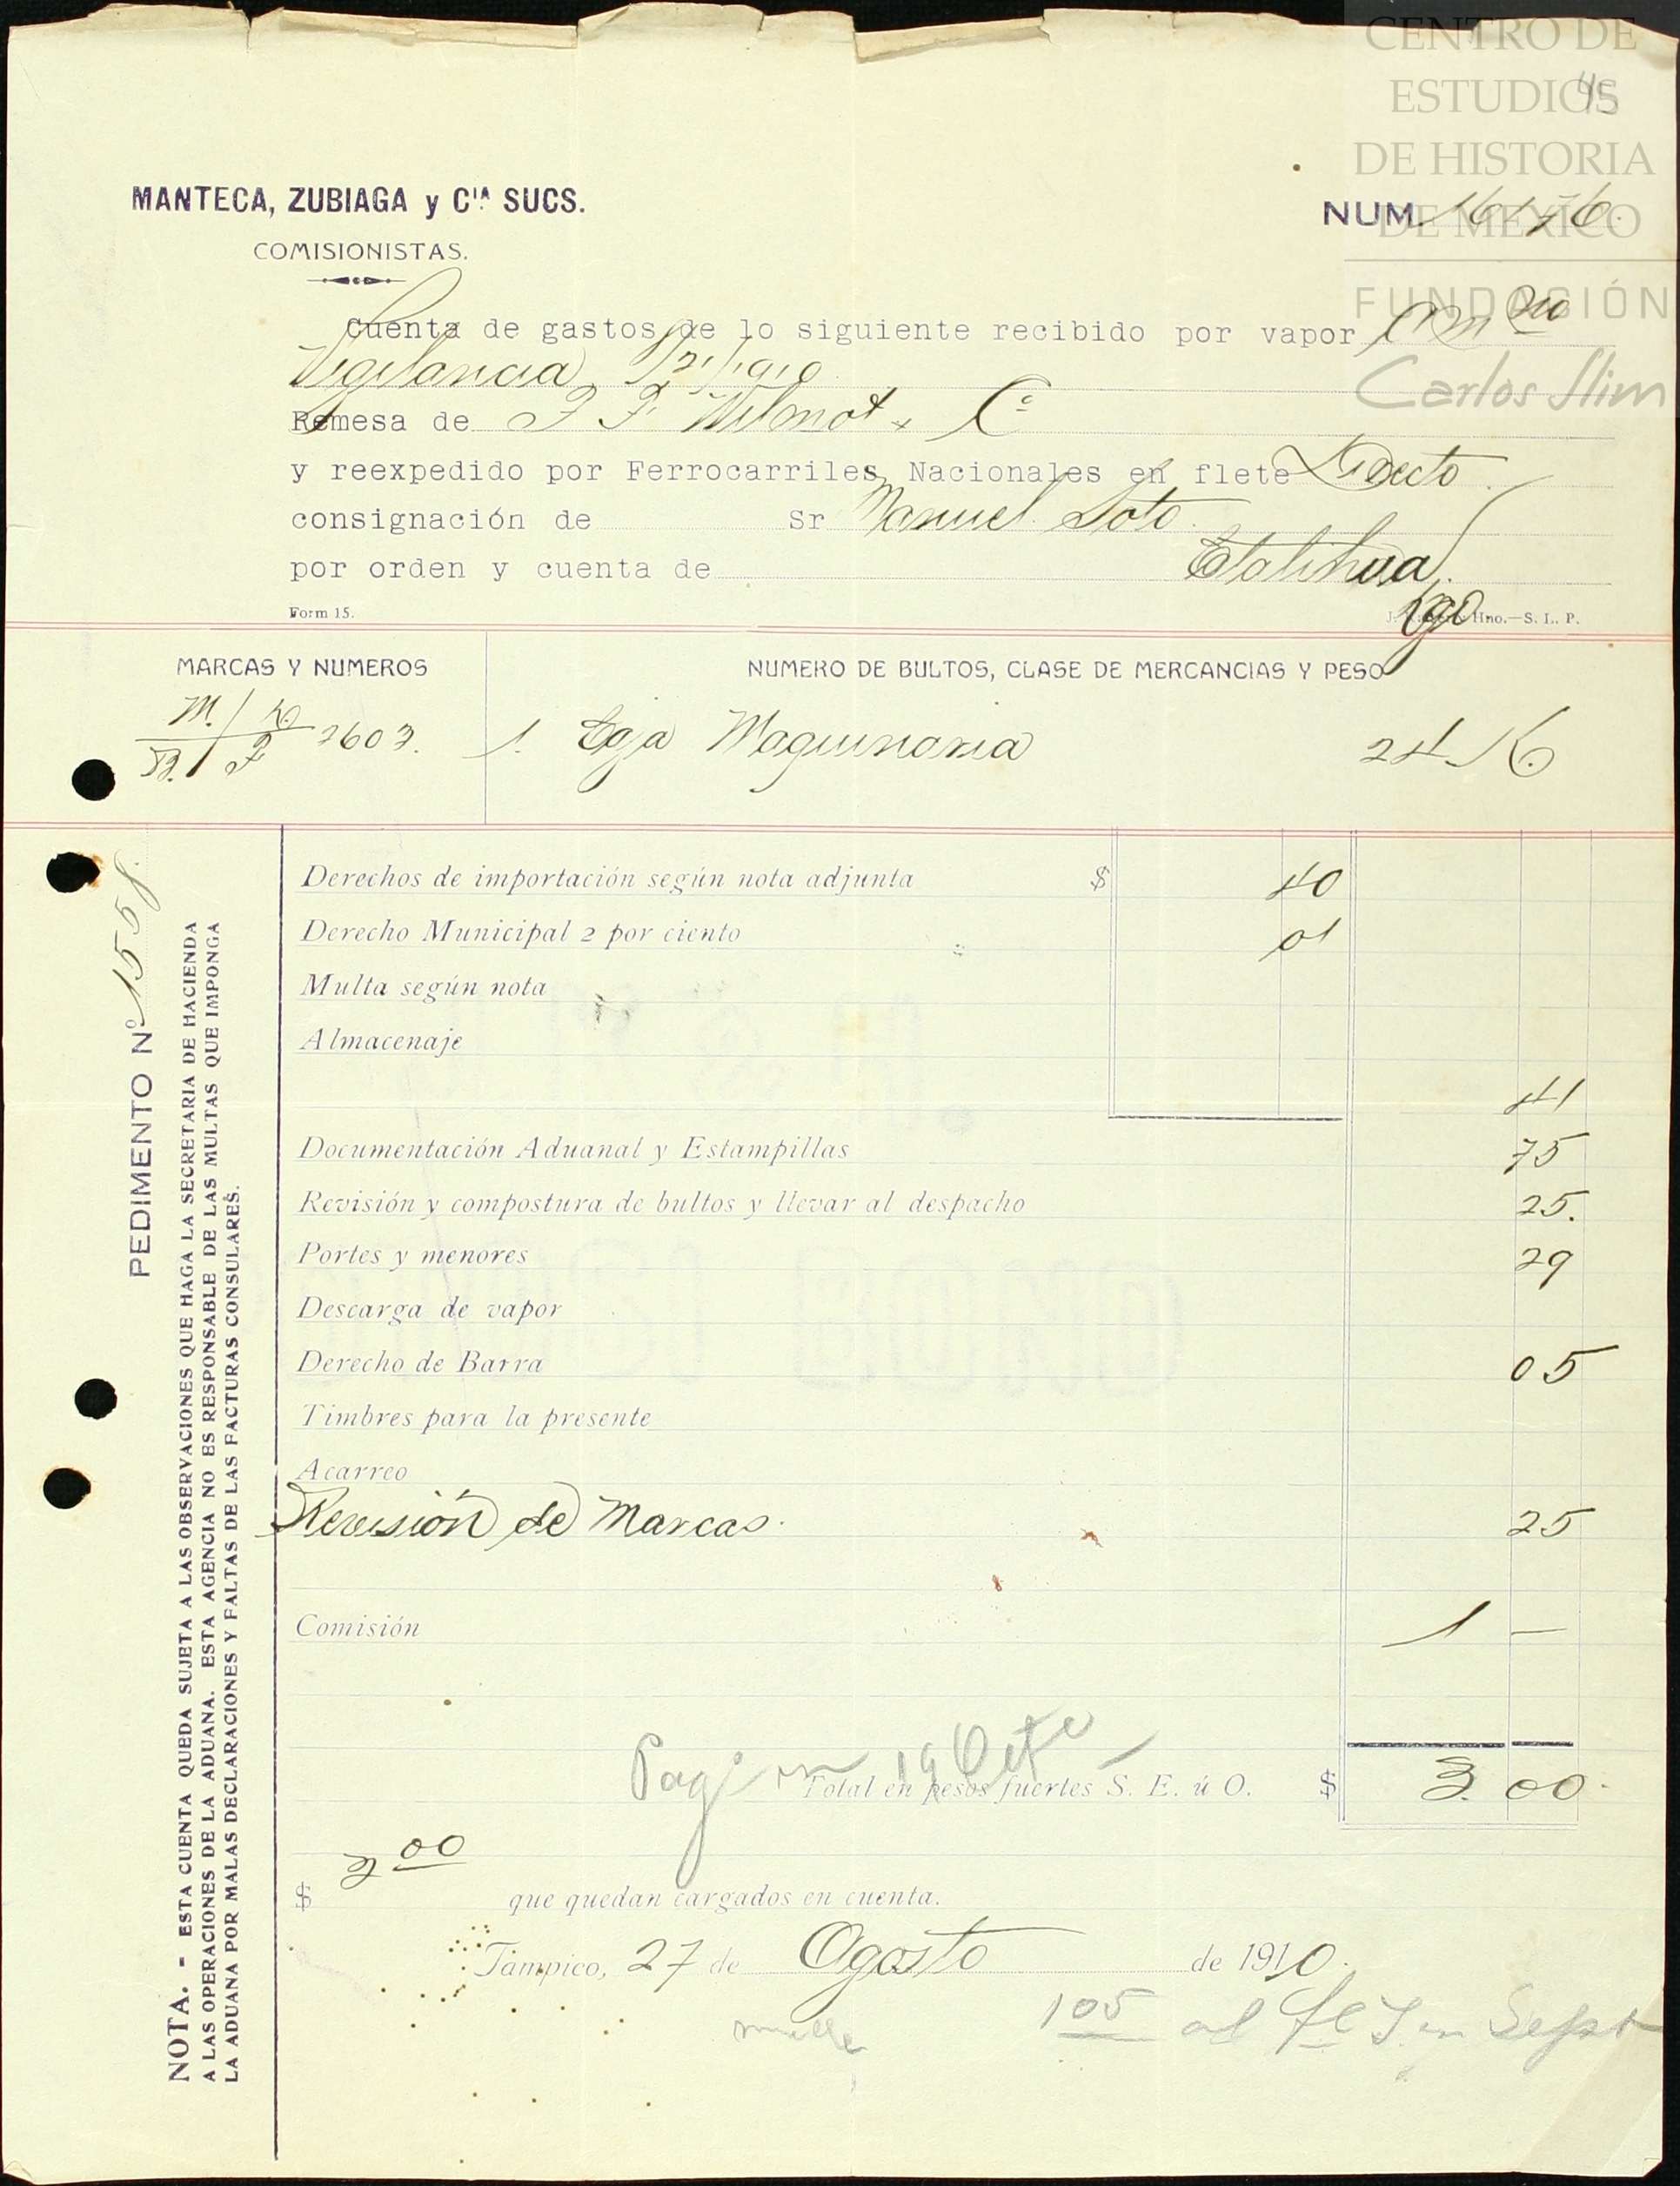 CENTRO DE
ESTUDIOS
DE HISTORIA
DE MEXICO
FUNDACIÓN
Carlos Slim
45
MANTECA, ZUBIAGA y CIA SUCS.
COMISIONISTAS.
NUM. 16176.
Cuenta de gastos de lo siguiente recibido por vapor Amno
Vigilancia
Remesa de F F Wilmot & Co
y reexpedido por Ferrocarriles Nacionales en flete Directo
consignación de Sr Manuel Soto
por orden y cuenta de
Hgo.
Form 15.
Hno.—S. L. P.
MARCAS Y NUMEROS
NUMERO DE BULTOS, CLASE DE MERCANCIAS Y PESO
M. S.
B. F 2603.
1. Caja Maquinaria 24 K.
Derechos de importación según nota adjunta $ 40
Derecho Municipal 2 por ciento 01
Multa según nota
Almacenaje
41
Documentación Aduanal y Estampillas 75
Revisión y compostura de bultos y llevar al despacho 25.
Portes y menores 29
Descarga de vapor
Derecho de Barra 05
Timbres para la presente
Acarreo
Revisión de Marcas. 25
Comisión 1 —
Total en pesos fuertes S. E. ú O. $ 3.00.
$ 3 00 que quedan cargados en cuenta.
Tampico, 27 de Agosto de 1910.
105 al en Sept
muelle
PEDIMENTO No 1558.
NOTA. - ESTA CUENTA QUEDA SUJETA A LAS OBSERVACIONES QUE HAGA LA SECRETARIA DE HACIENDA
A LAS OPERACIONES DE LA ADUANA. ESTA AGENCIA NO ES RESPONSABLE DE LAS MULTAS QUE IMPONGA
LA ADUANA POR MALAS DECLARACIONES Y FALTAS DE LAS FACTURAS CONSULARES.